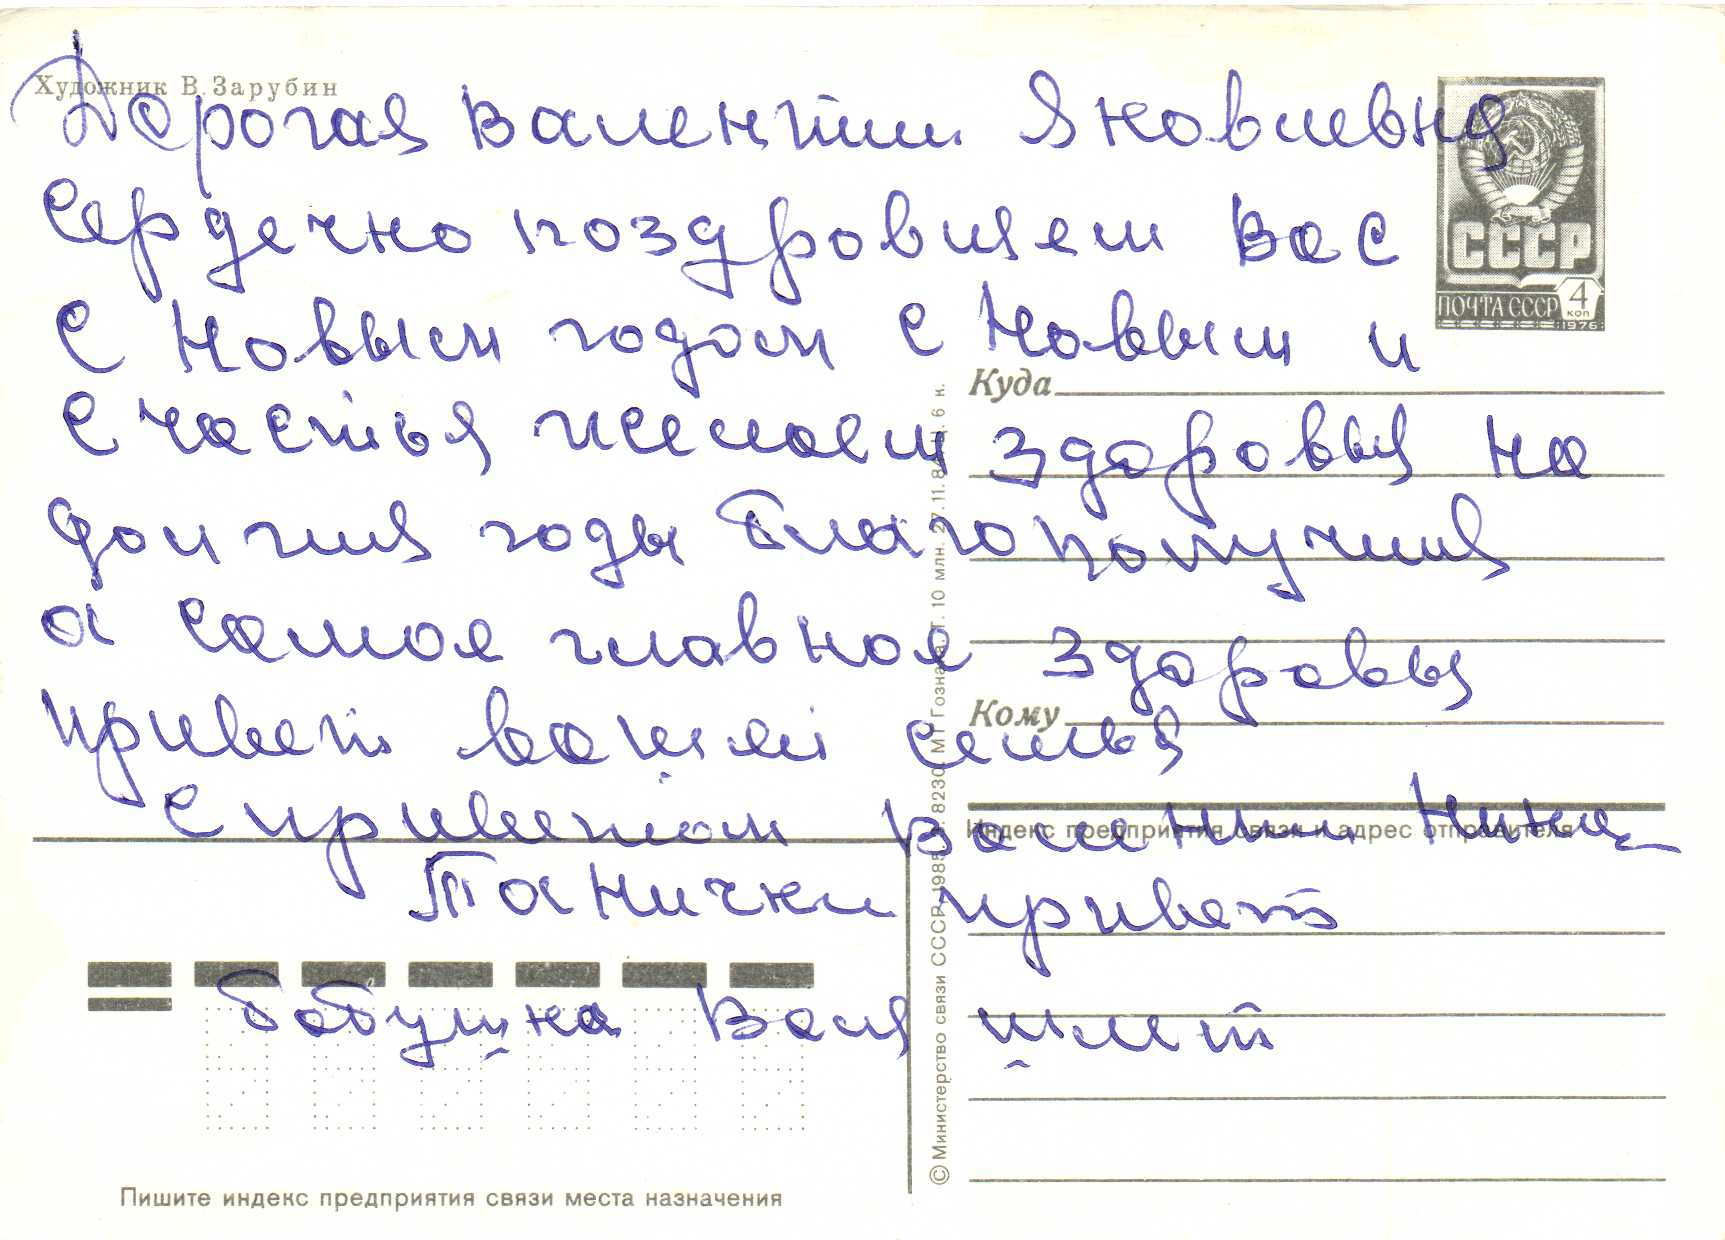 Художник В. Зарубин
Дорогая Валентин Яковлевна
Сердечно поздровляем Вас
С Новым годом с Новым и
счастья желаем здоровья на
долгия годы благополучия
а самое главное здоровья
привет вашей семья
С приветом Нина
Танички привет
бабушка Валя шлет
СССР
ПОЧТА СССР
4
коп
1976
Куда
Кому
Индекс предприятия связи и адрес отправителя
© Министерство связи СССР. 1985. МТ Гознака. Т. 10 млн. 27.11.84 Ц. 6 к.
Пишите индекс предприятия связи места назначения